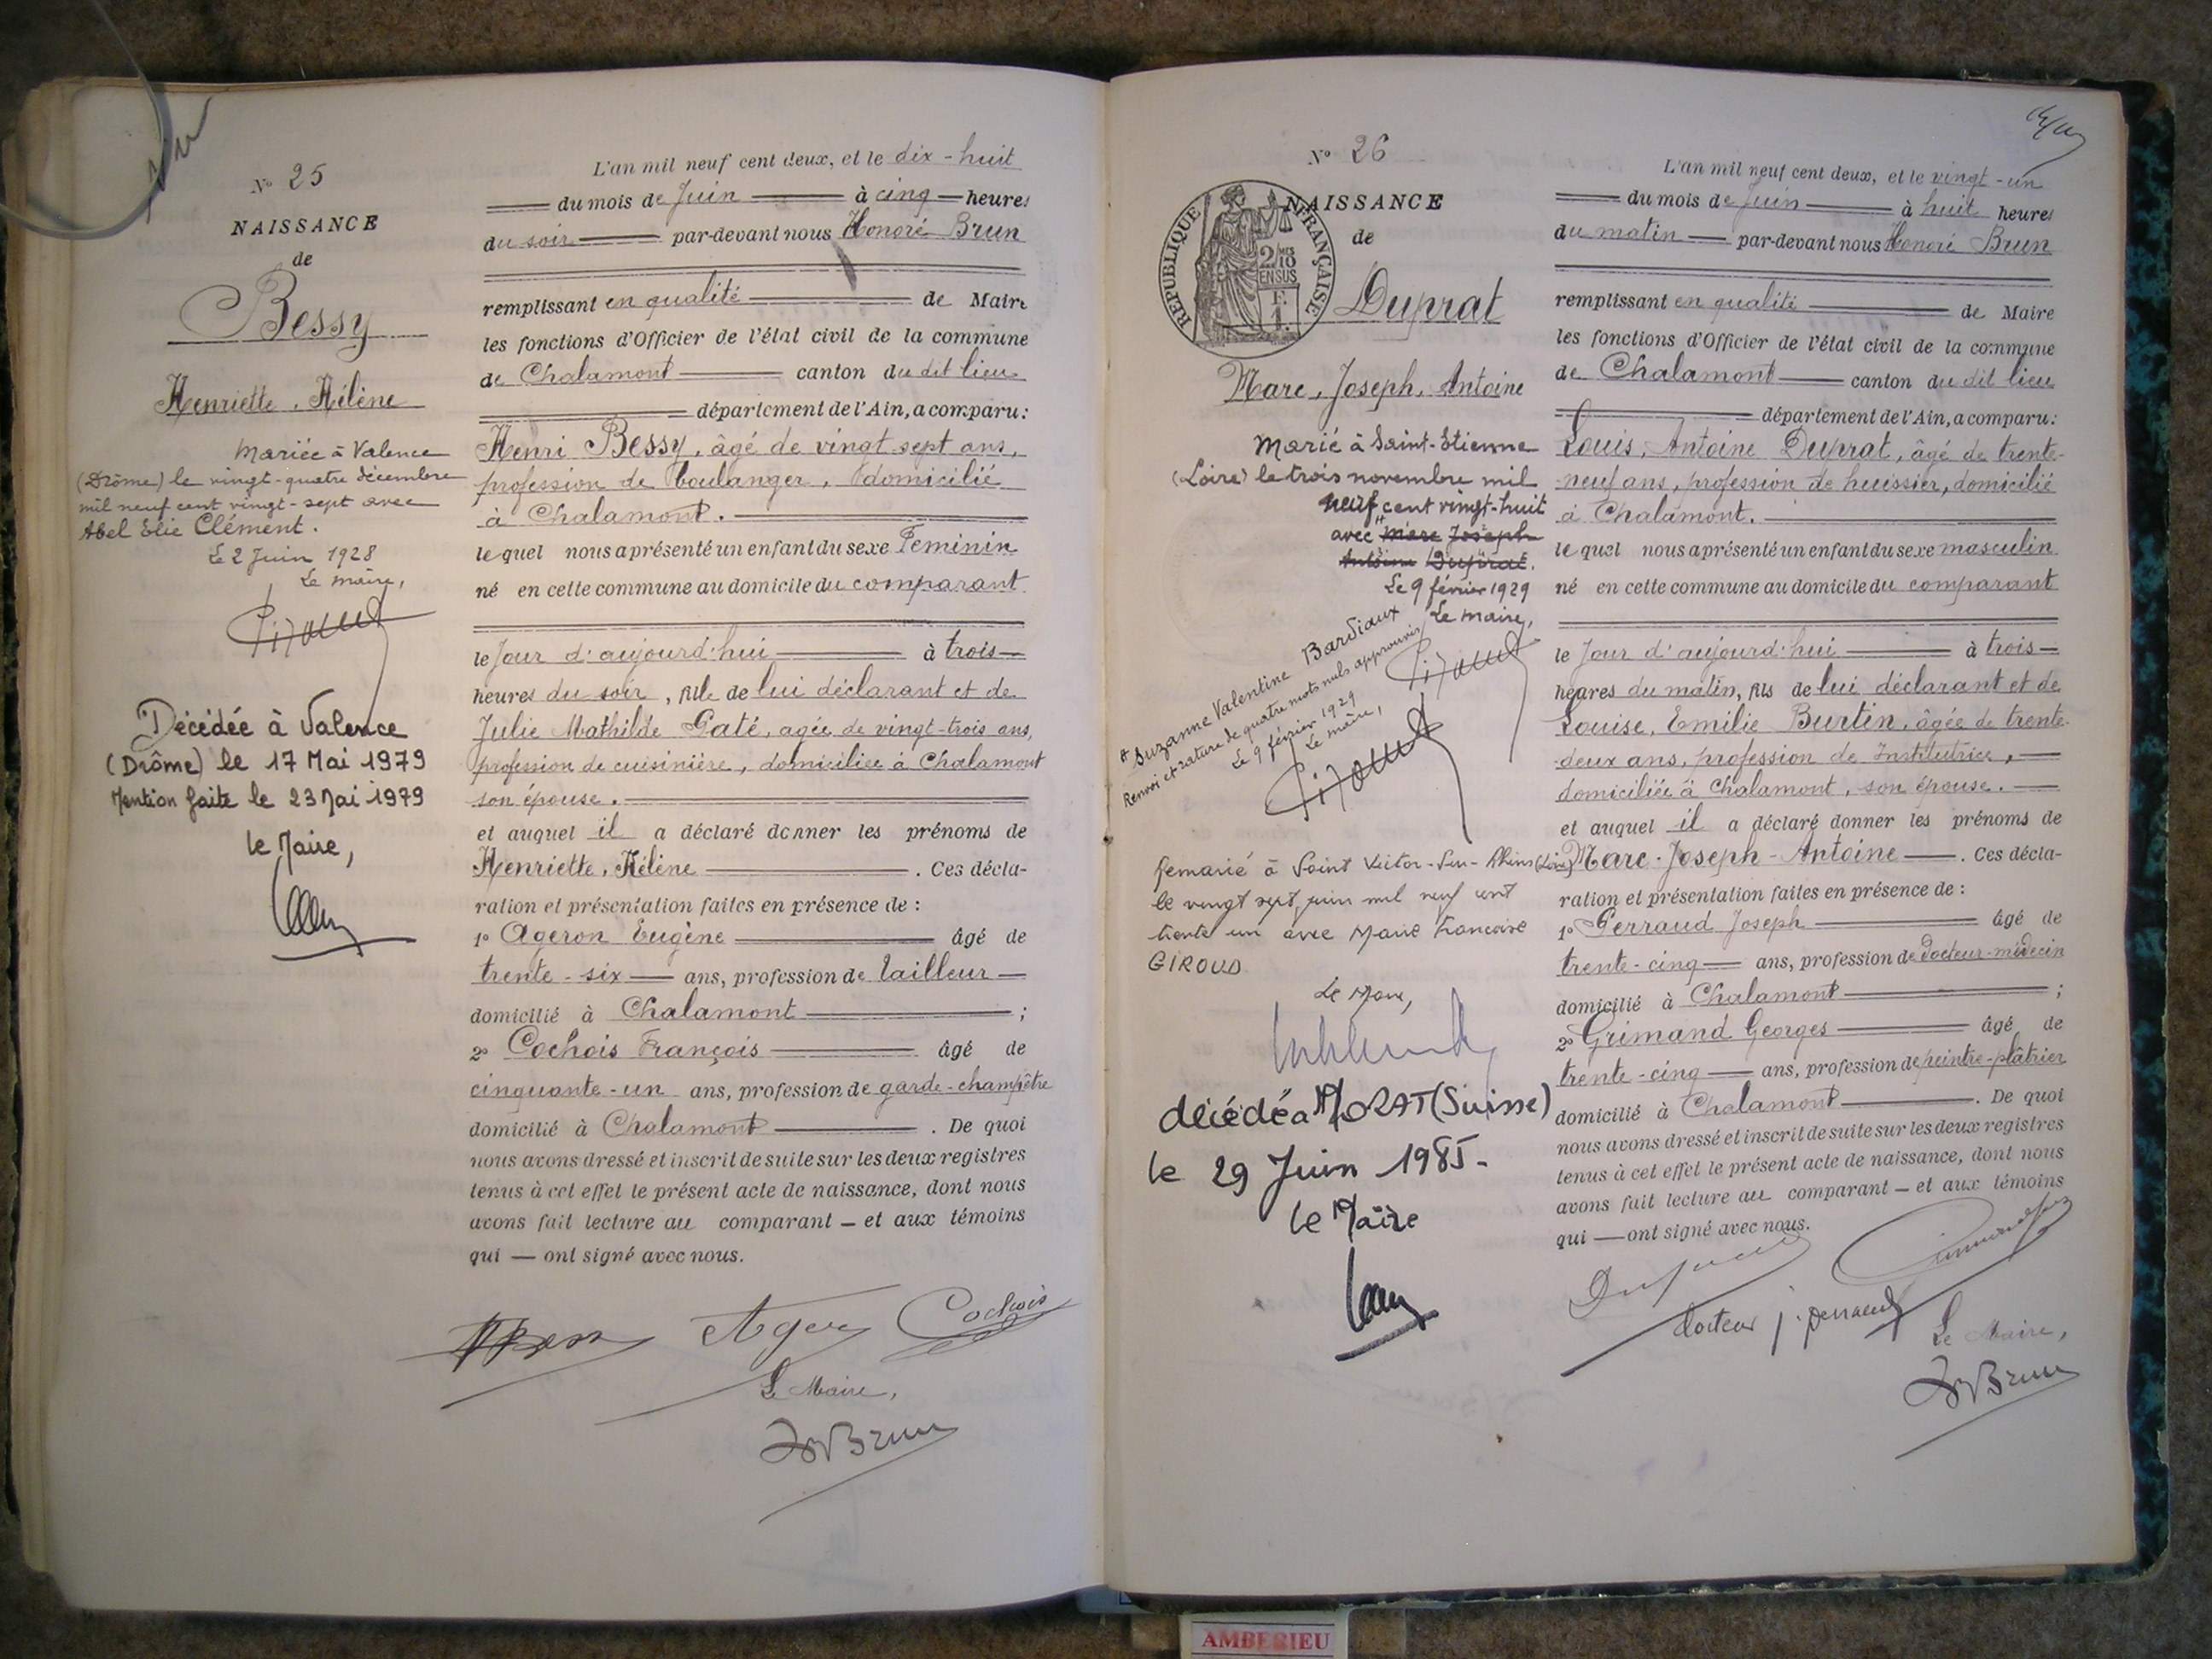 N° 25
NAISSANCE
de
Bessy
Henriette, Hélène
Mariée à Valence
(Drôme) le vingt-quatre décembre
mil neuf cent vingt-sept avec
Abel Elie Clément.
Le 2 Juin 1928
Le maire,
Décédée à Valence
(Drôme) le 17 Mai 1979
Mention faite le 23 Mai 1979
le Maire,
L'an mil neuf cent deux, et le dix-huit
du mois de Juin à cinq heures
du soir par-devant nous Honoré Brun
remplissant en qualité de Maire
les fonctions d'Officier de l'état civil de la commune
de Chalamont canton du dit lieu
département de l'Ain, a comparu:
Henri Bessy, âgé de vingt sept ans,
profession de boulanger, domicilié
à Chalamont.
lequel nous a présenté un enfant du sexe Féminin
né en cette commune au domicile du comparant
le Jour d'aujourd'hui à trois
heures du soir, fille de lui déclarant et de
Julie Mathilde Gaté, agée de vingt-trois ans,
profession de cuisinière, domiciliée à Chalamont
son épouse.
et auquel il a déclaré donner les prénoms de
Henriette, Hélène. Ces décla-
ration et présentation faites en présence de :
1° Ageron Eugène âgé de
trente-six ans, profession de tailleur
domicilié à Chalamont ;
2° Cochois François âgé de
cinquante-un ans, profession de garde-champêtre
domicilié à Chalamont. De quoi
nous avons dressé et inscrit de suite sur les deux registres
tenus à cet effet le présent acte de naissance, dont nous
avons fait lecture au comparant — et aux témoins
qui — ont signé avec nous.
Cochois
Le Maire,
Brun
N° 26
NAISSANCE
de
RÉPUBLIQUE FRANÇAISE
2/10
EN SUS
Duprat
Marc, Joseph, Antoine
Marié à Saint-Etienne
(Loire) le trois novembre mil
neuf cent vingt-huit
avec Marc Joseph
Antoine Duprat.
Le 9 février 1929
Le maire,
Suzanne Valentine Bardiaux
Renvoi et rature de quatre mots nuls approuvés
Le 9 février 1929
Le maire,
Remarié à Saint Victor-Sur-Rhins (Loire)
le vingt sept juin mil neuf cent
trente un avec Marie Françoise
GIROUD
Le Maire,
décédé à MORAT (Suisse)
le 29 Juin 1985.
le Maire
L'an mil neuf cent deux, et le vingt-un
du mois de Juin à huit heures
du matin par-devant nous Honoré Brun
remplissant en qualité de Maire
les fonctions d'Officier de l'état civil de la commune
de Chalamont canton du dit lieu
département de l'Ain, a comparu:
Louis, Antoine Duprat, âgé de trente-
neuf ans, profession de huissier, domicilié
à Chalamont.
lequel nous a présenté un enfant du sexe masculin
né en cette commune au domicile du comparant
le Jour d'aujourd'hui à trois
heures du matin, fils de lui déclarant et de
Louise, Emilie Burtin, âgée de trente-
deux ans, profession de Institutrice,
domiciliée à Chalamont, son épouse.
et auquel il a déclaré donner les prénoms de
Marc-Joseph-Antoine. Ces décla-
ration et présentation faites en présence de :
1° Perraud Joseph âgé de
trente-cinq ans, profession de docteur-médecin
domicilié à Chalamont ;
2° Grimand Georges âgé de
trente-cinq ans, profession de peintre-plâtrier
domicilié à Chalamont. De quoi
nous avons dressé et inscrit de suite sur les deux registres
tenus à cet effet le présent acte de naissance, dont nous
avons fait lecture au comparant — et aux témoins
qui — ont signé avec nous.
docteur j. perraud
Le Maire,
Brun
AMBERIEU